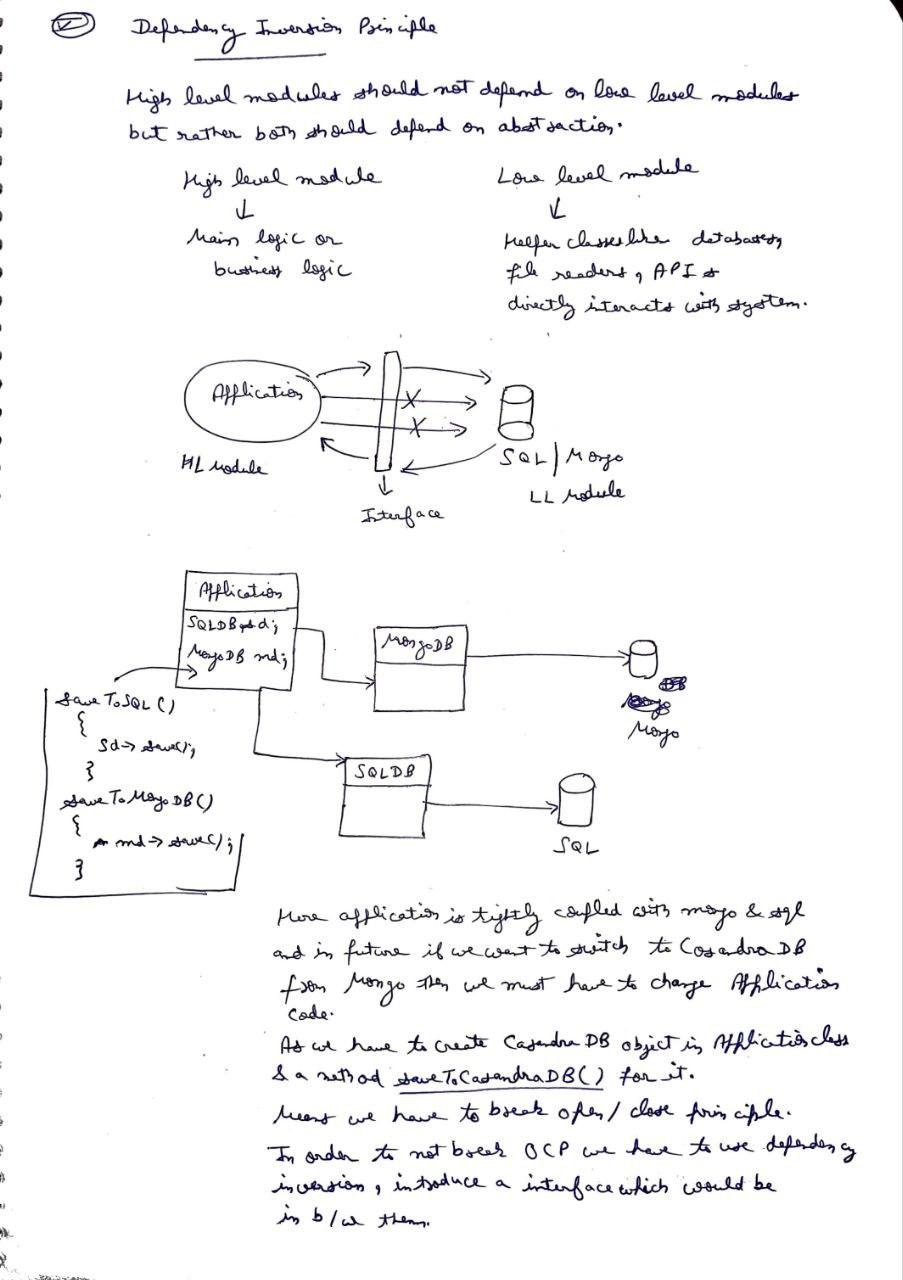 V Dependency Inversion Principle
High level modules should not depend on low level modules
but rather both should depend on abstraction.
High level module
Main logic or
business logic
Low level module
Helper classes like databases,
file readers, APIs
directly interacts with system.
Application
HL Module
Interface
SQL / Mongo
LL Module
Application
SQLDB sd;
MongoDB md;
MongoDB
Mongo
SaveToSQL()
{
Sd-> save();
}
SaveToMongoDB()
{
md-> save();
}
SQLDB
SQL
Here application is tightly coupled with mongo & sql
and in future if we want to switch to Casandra DB
from Mongo then we must have to change Application
Code.
As we have to create Casandra DB object in Application class
& a method saveToCasandraDB() for it.
Means we have to break open / close principle.
In order to not break OCP we have to use dependency
inversion, introduce a interface which would be
in b/w them.